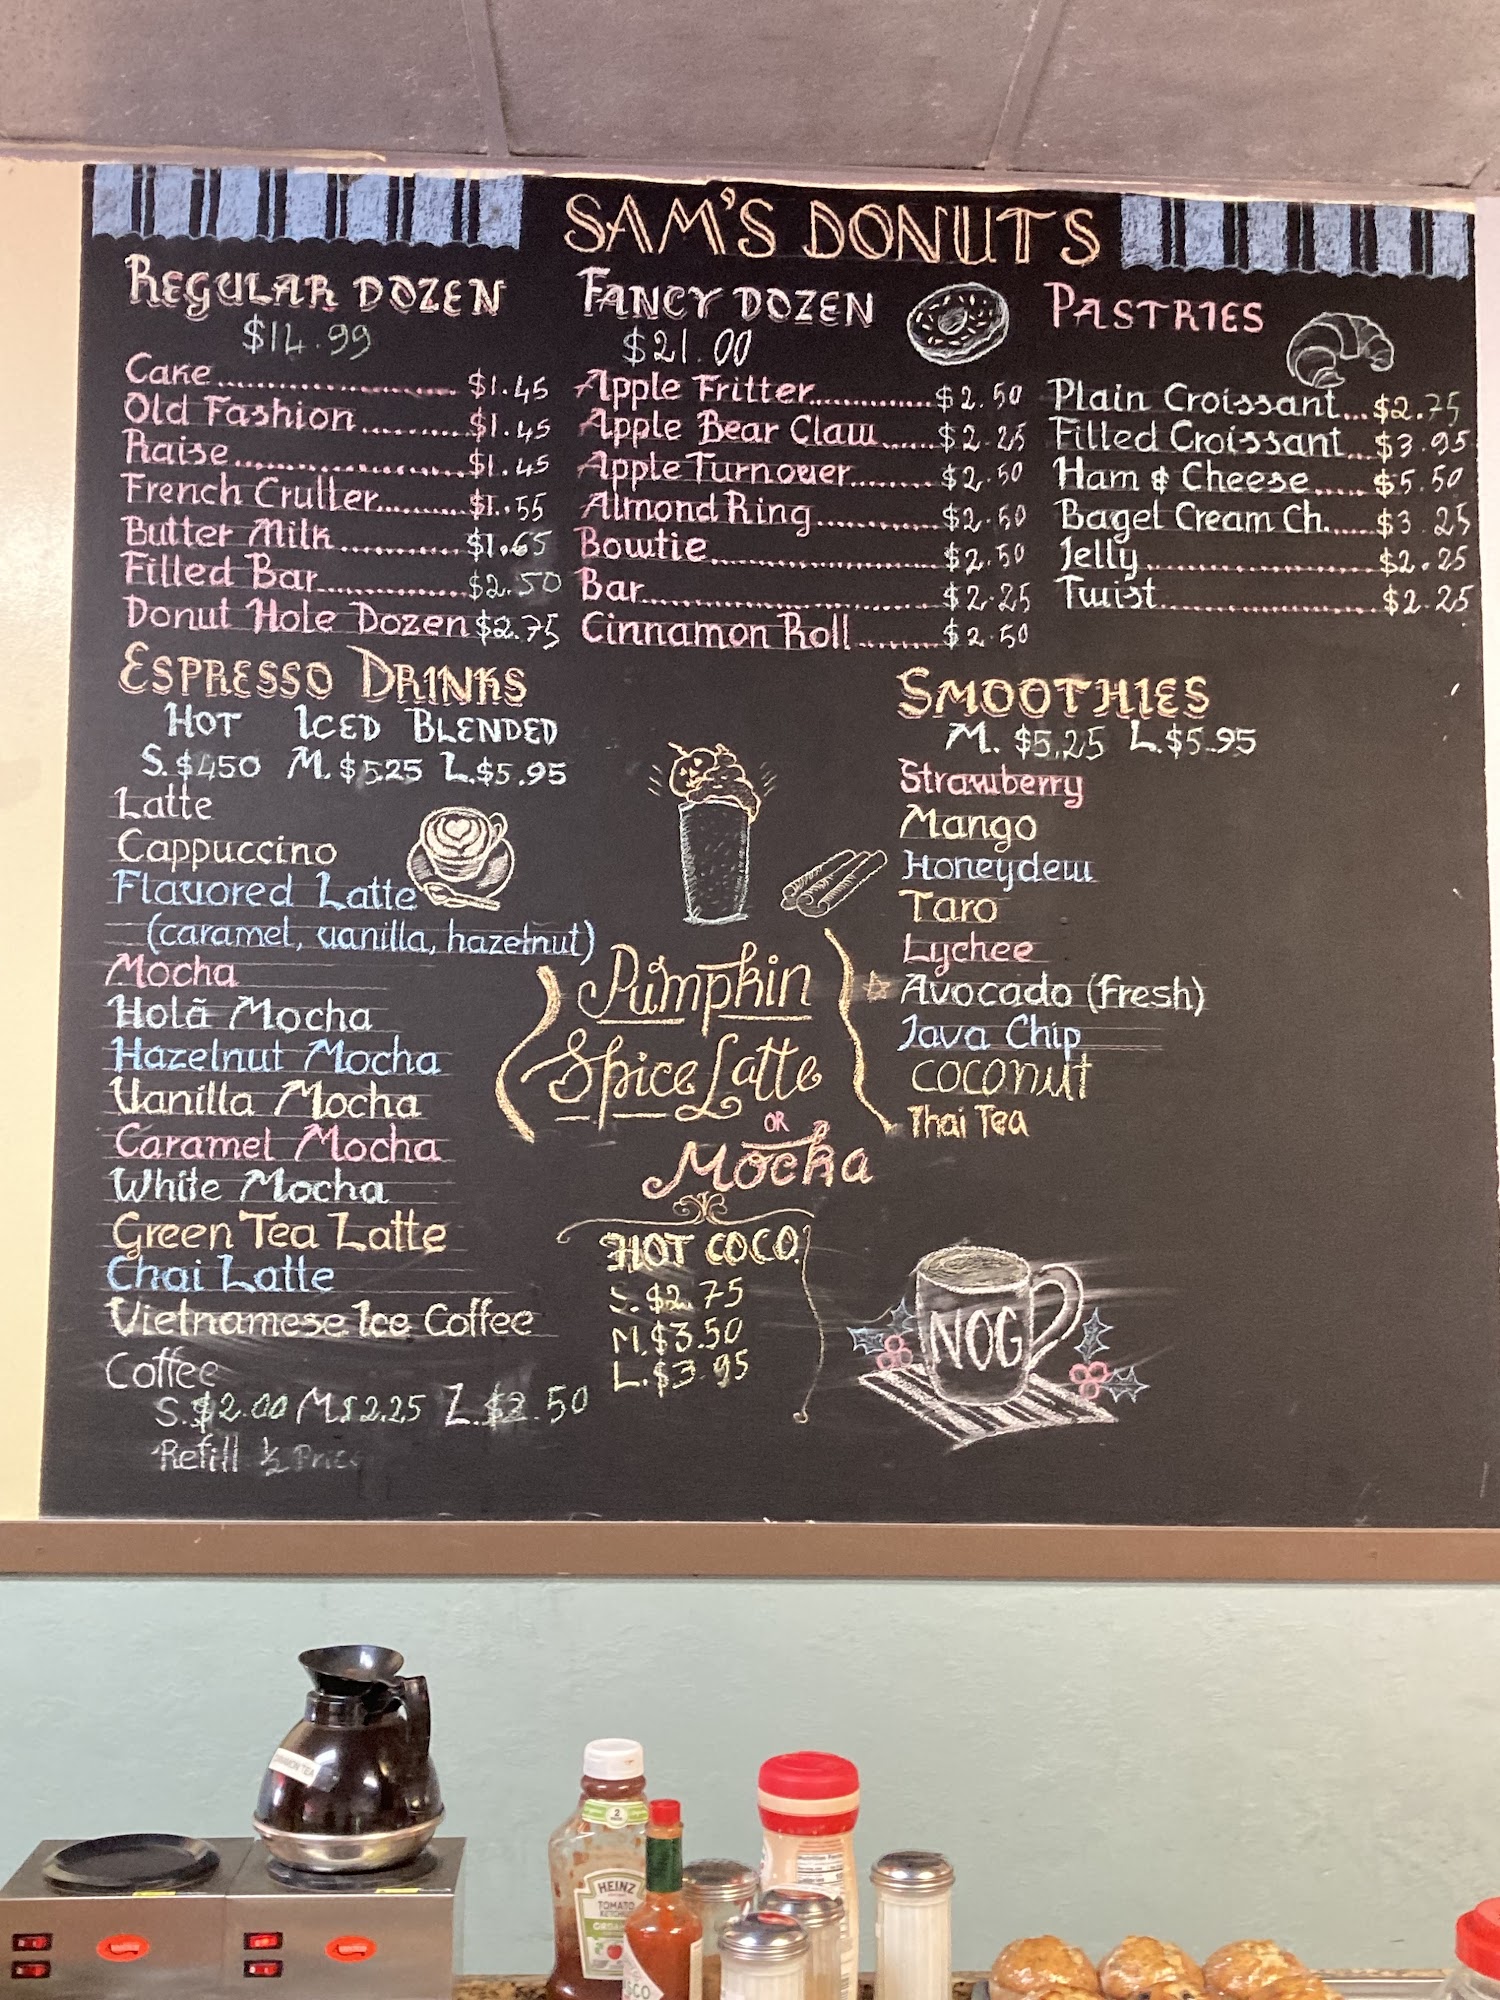 SAM'S DONUTS
REGULAR DOZEN
$14.99
Cake........................ $1.45
Old Fashion...........$1.45
Raise........................$1.45
French Cruller.........$1.55
Butter Milk............$1.65
Filled Bar...............$2.50
Donut Hole Dozen $2.75
FANCY DOZEN
$21.00
Apple Fritter.............$2.50
Apple Bear Claw......$2.25
Apple Turnover.........$2.50
Almond Ring.............$2.50
Bowtie........................$2.50
Bar..............................$2.25
Cinnamon Roll.........$2.50
PASTRIES
Plain Croissant...$2.75
Filled Croissant...$3.95
Ham & Cheese......$5.50
Bagel Cream Ch.....$3.25
Jelly........................$2.25
Twist......................$2.25
ESPRESSO DRINKS
HOT ICED BLENDED
S. $450 M. $525 L. $5.95
Latte
Cappuccino
Flavored Latte
(caramel, vanilla, hazelnut)
Mocha
Holã Mocha
Hazelnut Mocha
Vanilla Mocha
Caramel Mocha
White Mocha
Green Tea Latte
Chai Latte
Vietnamese Ice Coffee
Coffee
S. $2.00 M $2.25 L. $2.50
Refill ½ Price
Pumpkin
Spice Latte
OR
Mocha
HOT COCO
S. $2.75
M. $3.50
L. $3.95
SMOOTHIES
M. $5.25 L. $5.95
Strawberry
Mango
Honeydew
Taro
Lychee
Avocado (Fresh)
Java Chip
COCONUT
Thai Tea
NOG
HEINZ
TOMATO
KETCHUP